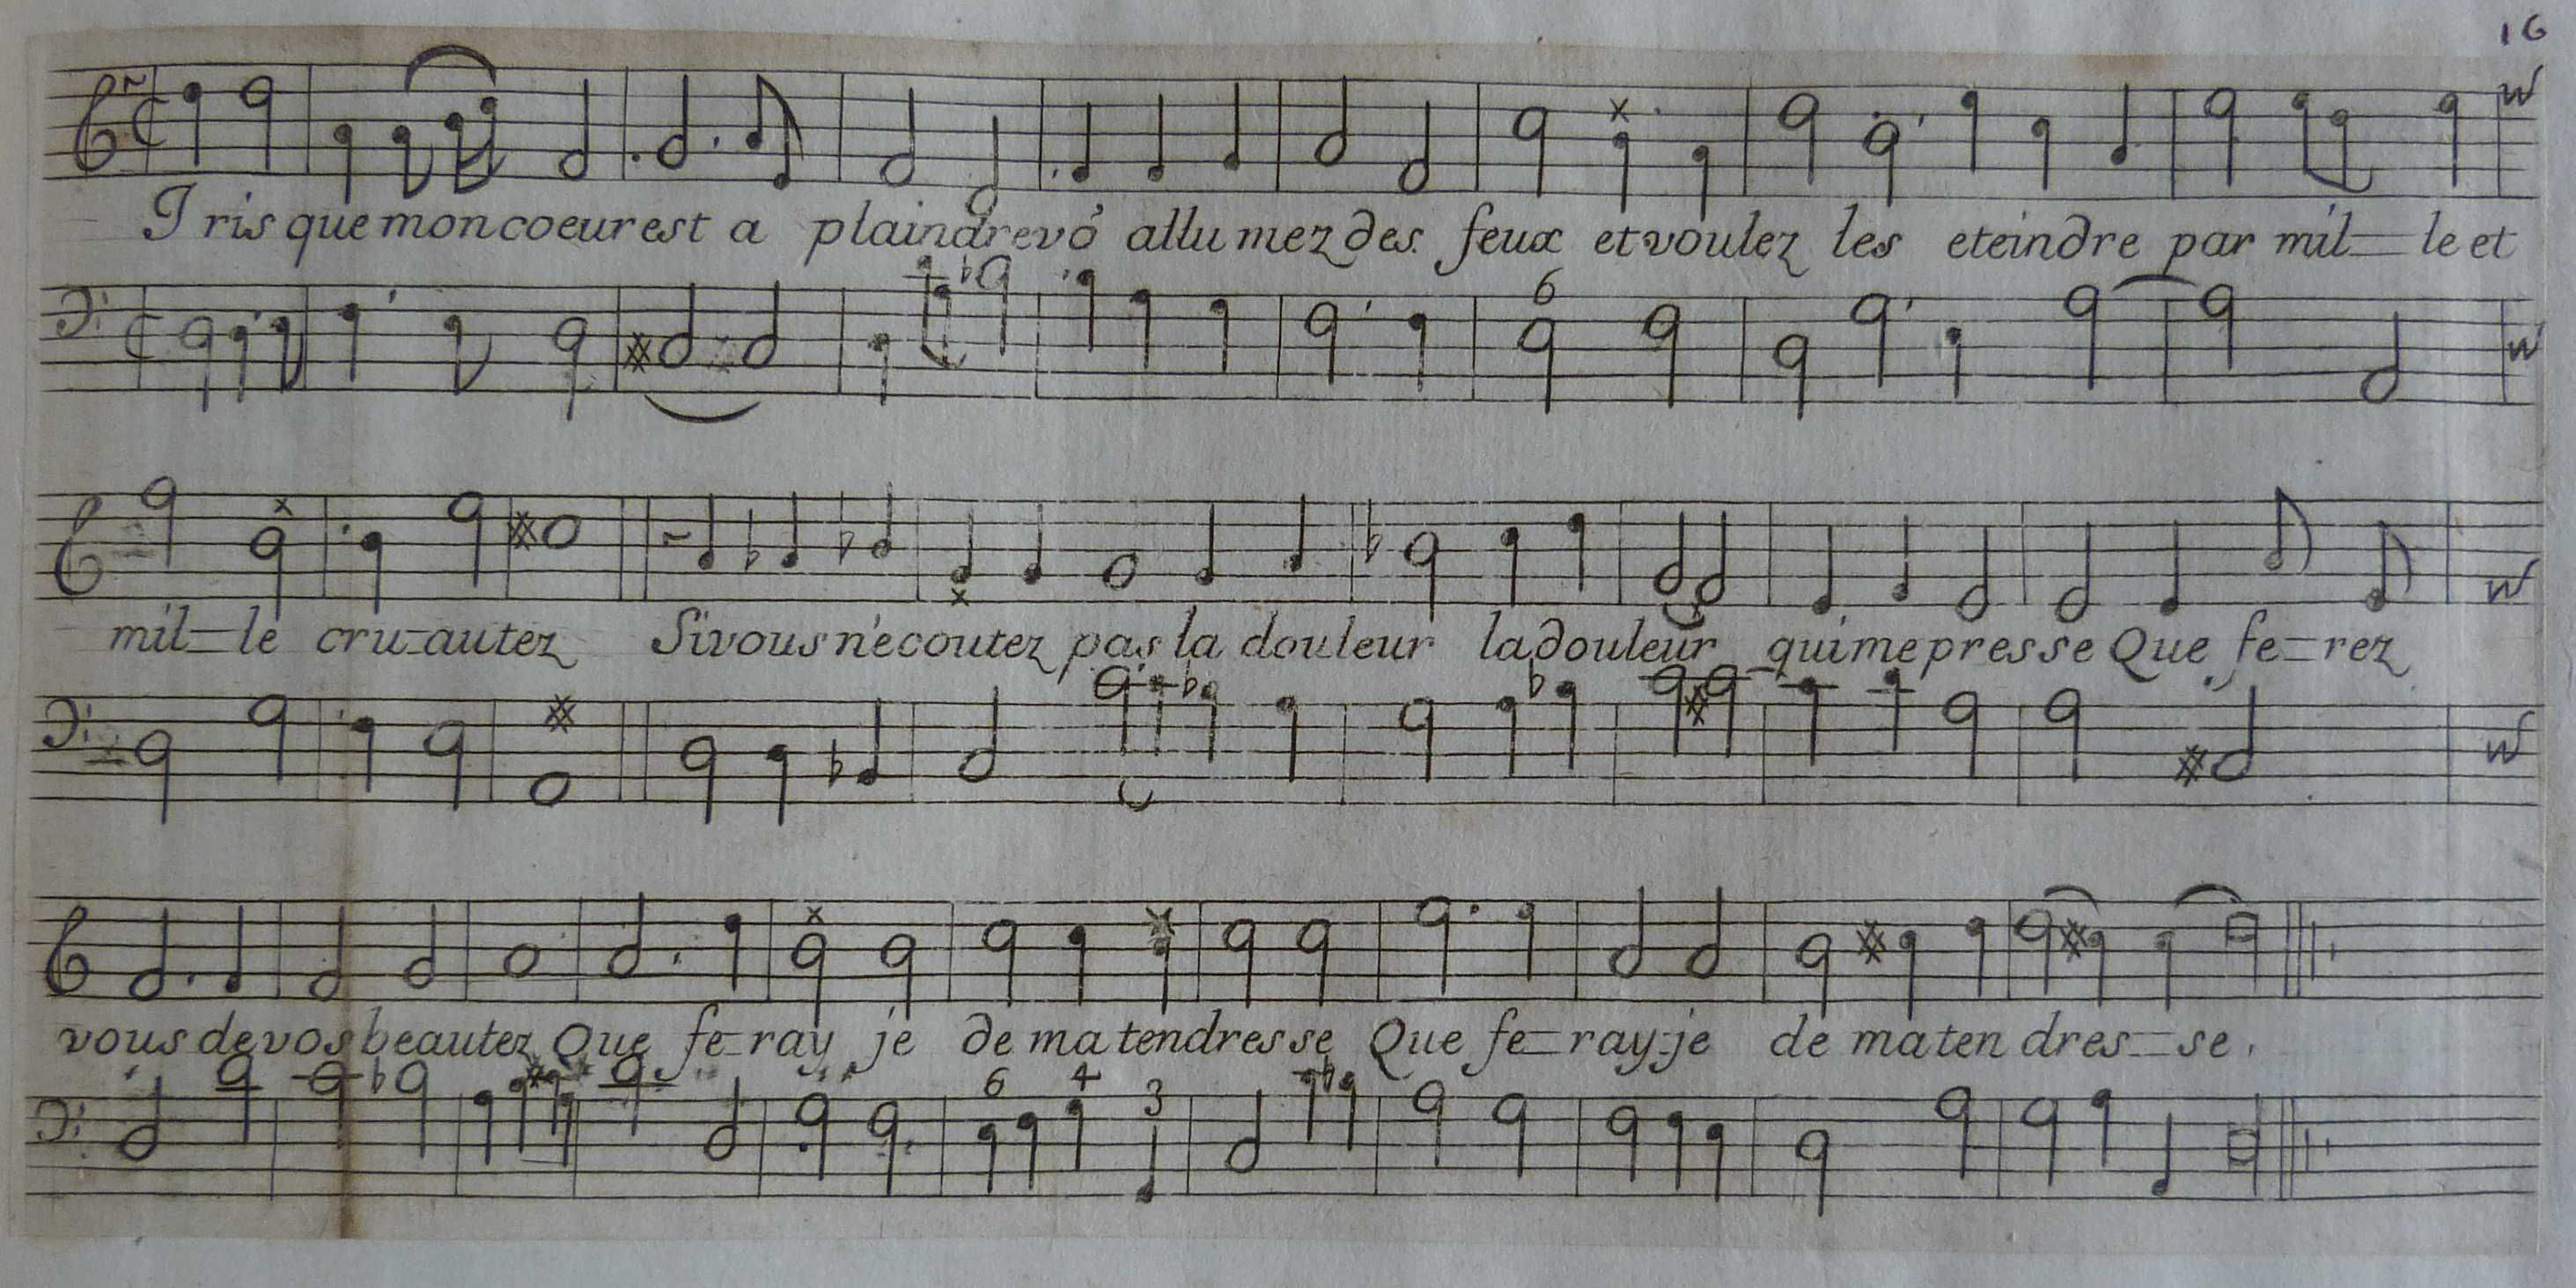 16
Iris que mon coeur est a plaindre vo' allumez des feux et voulez les eteindre par mil=le et
6
mil=le cru=autez Si vous n'ecoutez pas la douleur la douleur qui me presse Que fe=rez
vous de vos beautez Que fe=ray je de ma tendresse Que fe=ray=je de ma ten dres=se.
6 4 3